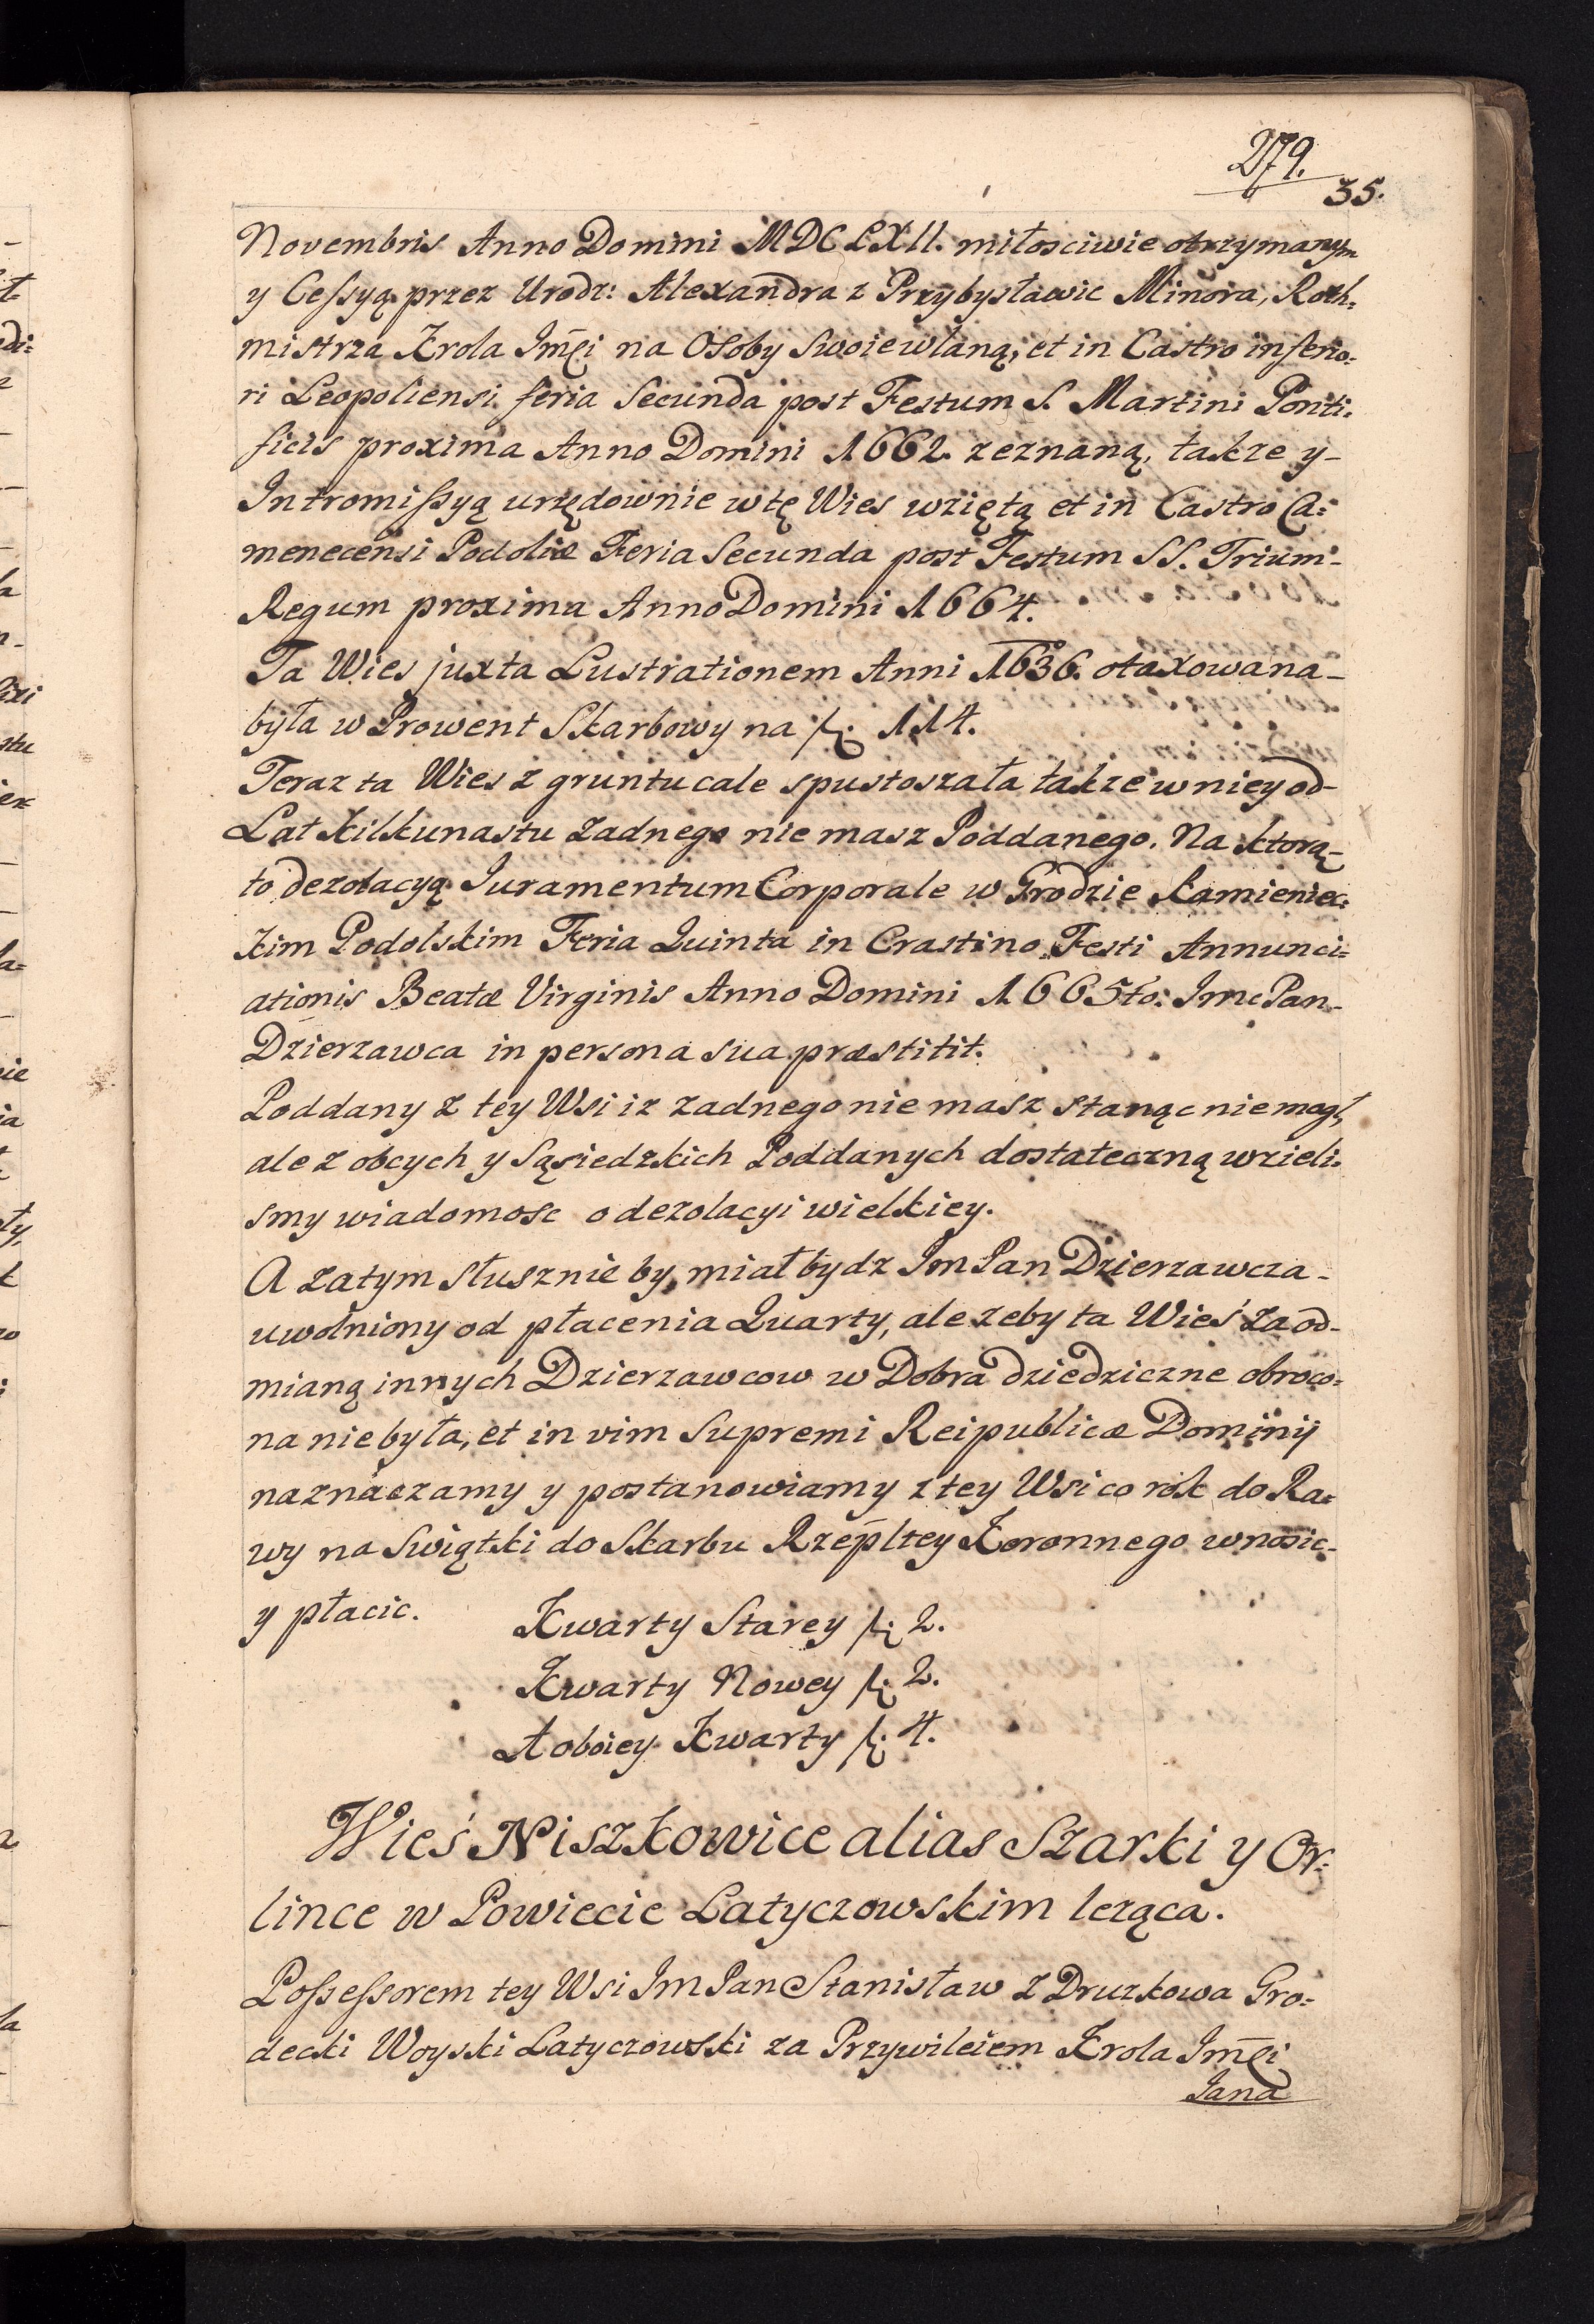 279.
35.
Novembris Anno Domini MDCLXII. miłosciwie otrzymanym
y Cessyą przez Urodz: Alexandra z Przybysławic Minora, Roth=
mistrza Krola Jm̃ci na Osoby Swoie wlaną, et in Castro inferio=
ri Leopoliensi feria Secunda post Festum S. Martini Ponti=
ficis proxima Anno Domini 1662. zeznaną, takze y-
Intromissyą urzędownie w tę Wies wziętą et in Castro Ca=
menecensi Podoliæ Feria Secunda post Festum SS. Trium-
Regum proxima Anno Domini 1664.
Ta Wies juxta Lustrationem Anni 1636. otaxowana-
była w Prowent Skarbowy na fl. 114.
Teraz ta Wies z gruntu cale spustoszała, takze w niey od-
Lat kilkunastu zadnego nie masz Poddanego. Na ktorą-
to dezolacyą Juramentum Corporale w Grodzie Kamieniec=
kim Podolskim Feria Quinta in Crastino Festi Annunci=
ationis Beatæ Virginis Anno Domini 1665to: Jmc Pan-
Dzierzawca in persona sua præstitit.
Poddany z tey Wsi iz zadnego nie masz stanąc nie mogł,
ale z obcych y Sąsiedzkich Poddanych dostateczną wzieli=
smy wiadomosc o dezolacyi wielkiey.
A zatym słusznie by miał bydz Jm Pan Dzierzawcza-
uwolniony od płacenia Quarty, ale zeby ta Wieś za od-
mianą innych Dzierzawcow w Dobra dziedziczne obroco=
na nie była, et in vim Supremi Reipublicæ Dominij
naznaczamy y postanowiamy z tey Wsi co rok do Ra=
wy na Swiątki do Skarbu Rzep̃ltey Koronnego wnosic-
y płacic.
Kwarty Starey fl. 2.
Kwarty Nowey fl. 2.
A oboiey Kwarty fl. 4.
Wieś Niszkowice alias Szarki y Or=
lince w Powiecie Latyczowskim leząca.
Possessorem tey Wsi Jm Pan Stanisław z Druzkowa Gro=
decki Woyski Latyczowski za Przywileiem Krola Jm̃ci
Jana